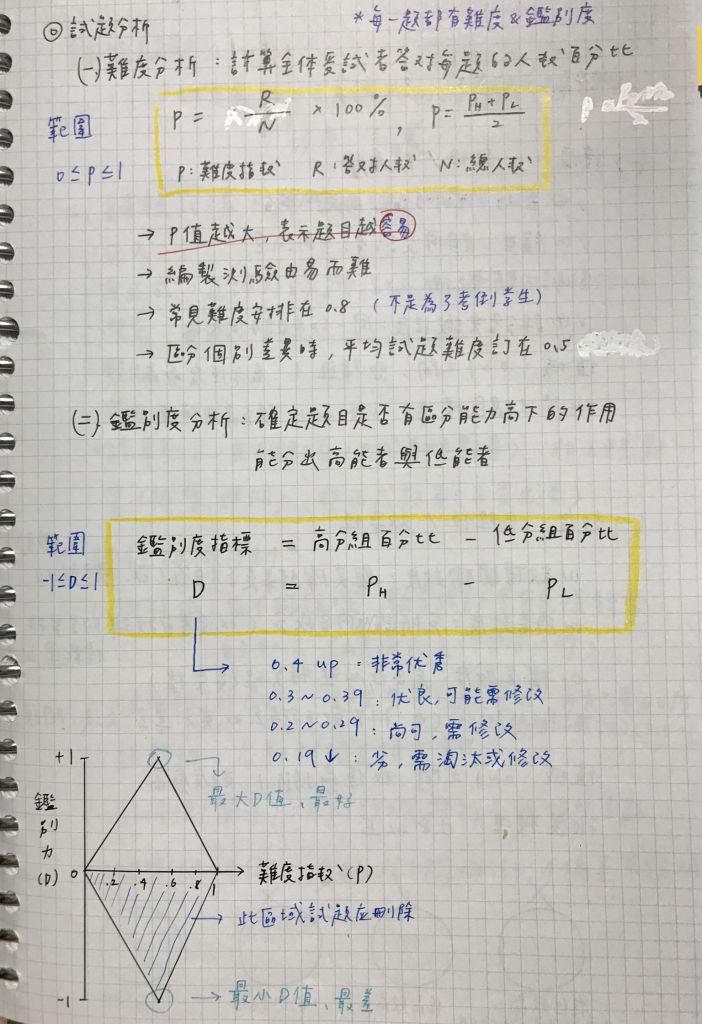 ◎ 試題分析
*每一題都有難度&鑑別度
(一)難度分析:計算全体受試者答対每題的人数百分比
範圍
0≤P≤1
P = R/N × 100%, P = (PH+PL)/2
P:難度指数 R:答対人数 N:總人数
→ P值越大,表示題目越容易
→ 編製測驗由易而難
→ 常見難度安排在 0.8 (不是為了考倒学生)
→ 區分個別差異時,平均試題難度訂在 0.5
(二)鑑別度分析:確定題目是否有區分能力高下的作用
能分出高能者與低能者
範圍
-1≤D≤1
鑑別度指標 = 高分組百分比 - 低分組百分比
D = PH - PL
0.4 up:非常优秀
0.3~0.39:优良,可能需修改
0.2~0.29:尚可,需修改
0.19↓:劣,需淘汰或修改
+1
→ 最大D值、最好
鑑別力(D)
0 .2 .4 .6 .8 1
難度指数(P)
→ 此區域試題应刪除
-1
→ 最小D值、最差